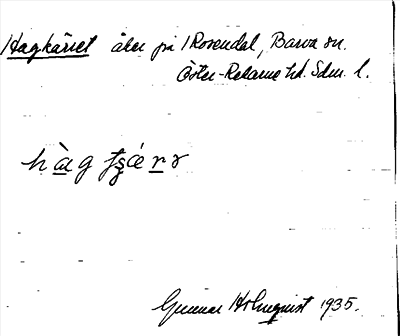 Hagkärret åker på 1 Rosendal, Barva sn.
Öster-Rekarne hd. Sdm. l.
Gunnar Holmquist 1935.